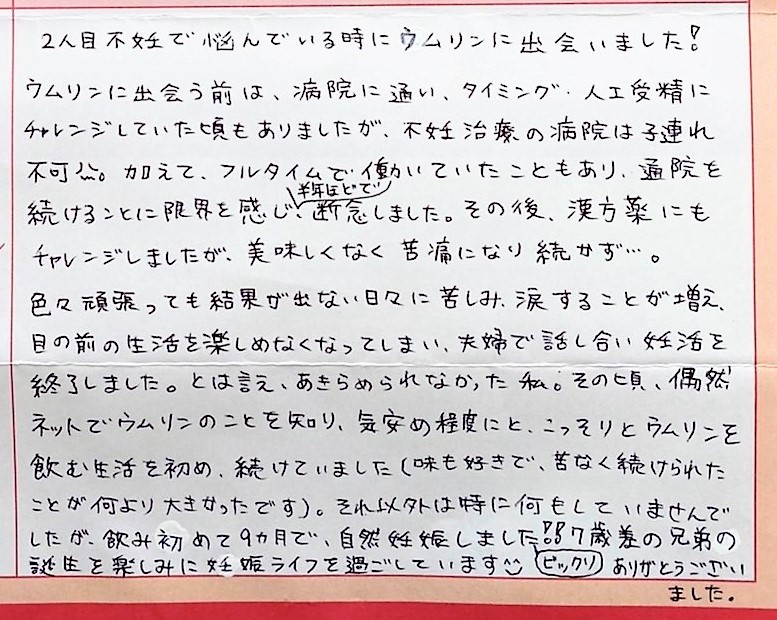 2人目不妊で悩んでいる時にウムリンに出会いました!
ウムリンに出会う前は、病院に通い、タイミング・人工受精に
チャレンジしていた頃もありましたが、不妊治療の病院は子連れ
不可。加えて、フルタイムで働いていたこともあり、通院を
半年ほどで
続けることに限界を感じ、断念しました。その後、漢方薬にも
チャレンジしましたが、美味しくなく苦痛になり続かず…。
色々頑張っても結果が出ない日々に苦しみ、涙することが増え、
目の前の生活を楽しめなくなってしまい、夫婦で話し合い妊活を
終了しました。とは言え、あきらめられなかった私。その頃、偶然
ネットでウムリンのことを知り、気安め程度にと、こっそりとウムリンを
飲む生活を初め、続けていました(味も好きで、苦なく続けられた
ことが何より大きかったです)。それ以外は特に何もしていませんで
したが、飲み初めて9ヵ月で、自然妊娠しました!!7歳差の兄弟の
誕生を楽しみに妊娠ライフを過ごしています ビックリ ありがとうござい
ました。